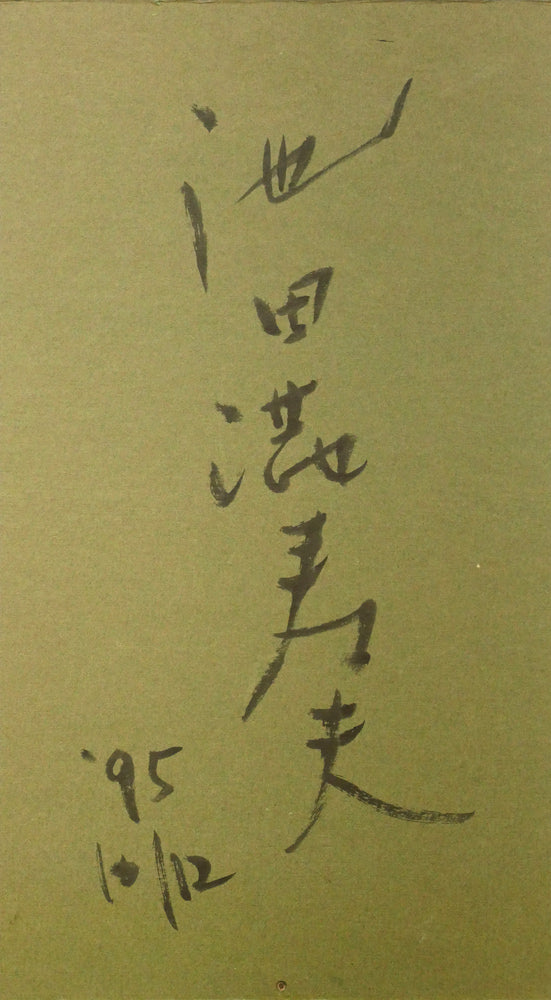 池田満寿夫
'95
10/12